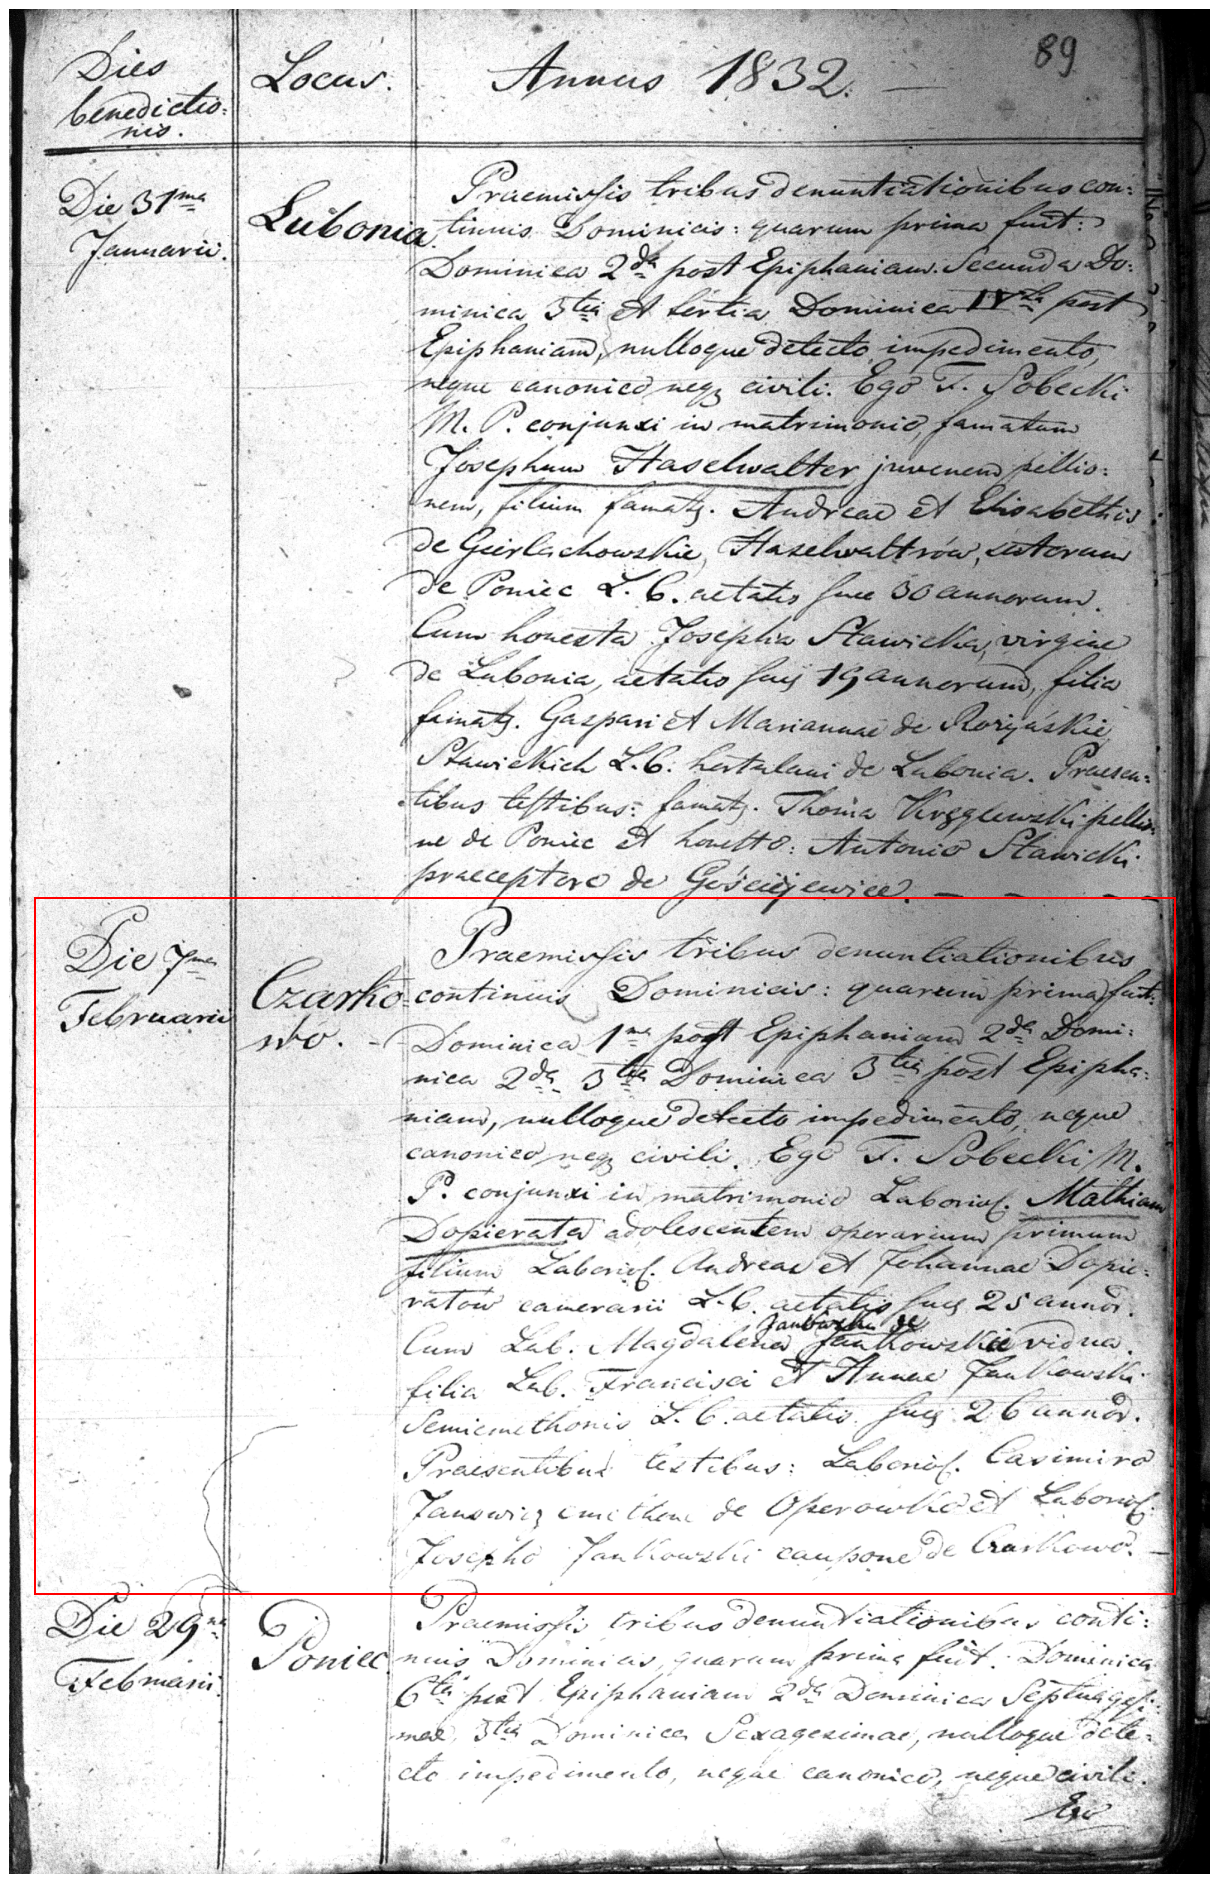 89
Dies benedictio:
nis.
Locus.
Annus 1832.
Die 31ma
Januarii.
Lubonia.
Praemissis tribus denuntiationibus con:
tinuis Dominicis: quarum prima fuit:
Dominica 2da post Epiphaniam. Secunda Do:
minica 3tia et tertia Dominica IVta post
Epiphaniam, nulloque detecto impedimento,
neque canonico neq civili. Ego F. Sobecki
M. P. conjunxi in matrimonio, famatum
Josephum Haselwalter juvenem pellio:
nem, filium famat. Andreae et Elisabethis
de Gierlachowskie, Haselwaltrów, sutorum
de Poniec L. C. aetatis suae 30 annorum.
Cum honesta Josepha Stawicka, virgine
de Lubonia, aetatis suae 19 annorum, filia
famat. Gaspari et Mariannae de
Stawickich L. C. hortulani de Lubonia. Praesen:
tibus testibus: famat. Thoma pellio:
ne de Poniec et honesto: Antonio Stawicki
praeceptore de Gościejewice. — — — —
Die 7ma
Februarii
Czarko:
wo. - -
Praemissis tribus denuntiationibus
continuis Dominicis: quarum prima fuit:
Dominica 1ma post Epiphaniam 2da Domi:
nica 2da 3tia Dominica 3tia post Epipha:
niam, nulloque detecto impedimento, neque
canonico neq civili. Ego F. Sobecki M.
P. conjunxi in matrimonio Laborios. Mathiam
Dopierata adolescentem operarium primum
filium Laborios. Andreae et Johannae Dopie:
ratów camerarii L. C. aetatis suae 25 annor.
Jankowska de
Cum Lab. Magdalena Jankowskie vidua.
filia Lab. Francisci et Annae Jankowski
Semicmethonis L. C. aetatis suae 26 annor.
Praesentibus testibus: Laborios. Casimiro
cmethone de Oporowko et Laborios.
Josepho Jankowski caupone de Czarkowo. —
Die 29na
Februarii.
Poniec.
Praemissis tribus denuntiationibus conti:
nuis Dominicis, quarum prima fuit. Dominica
6ta post Epiphaniam 2da Dominica Septuagesi:
mae, 3tia Dominica Sexagesimae, nulloque dete:
cto impedimento, neque canonico, neque civili.
Ego